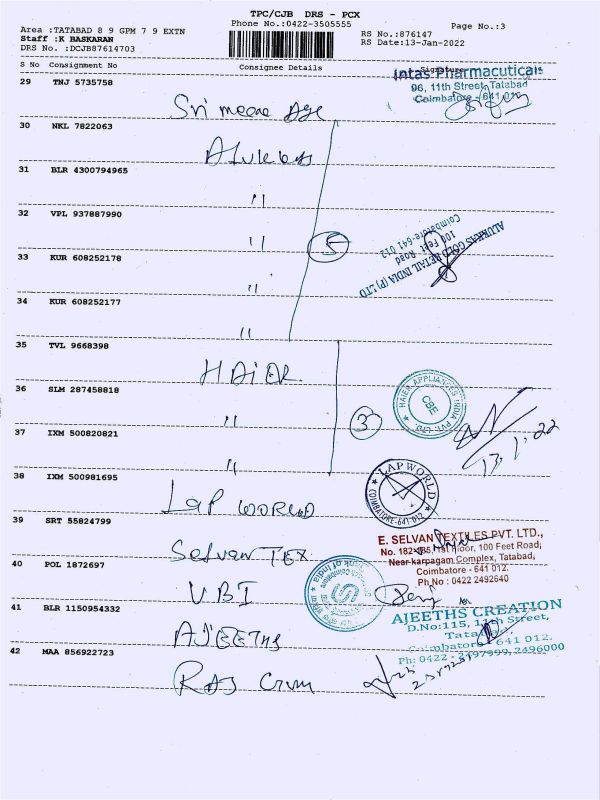 TPC/CJB DRS - PCX
Area :TATABAD 8 9 GPM 7 9 EXTN Phone No.:0422-3505555 Page No.:3
Staff :K BASKARAN RS No.:876147
DRS No. :DCJB87614703 RS Date:13-Jan-2022
S No Consignment No Consignee Details Signature
29 TNJ 5735758
Intas Pharmacuticals
96, 11th Street, Tatabad
Coimbatore - 641 012
Sri
30 NKL 7822063
31 BLR 4300794965
"
32 VPL 937887990
" 5
ALUKKAS GOLD RETAIL INDIA (P) LTD
100 Feet Road
Coimbatore-641 012
33 KUR 608252178
"
34 KUR 608252177
"
35 TVL 9668398
HAIER
HAIER APPLIANCES INDIA PVT. LTD.
CBE
36 SLM 287458818
" 3
13.1.22
37 IXM 500820821
"
38 IXM 500981695
LAP WORLD
LAP WORLD
COIMBATORE-641 012
39 SRT 55824799
Selvan TEX
E. SELVAN TEXTILES PVT. LTD.,
No. 182-185, 1st Floor, 100 Feet Road,
Near karpagam Complex, Tatabad,
Coimbatore - 641 012.
Ph.No : 0422 2492640
40 POL 1872697
UBI
41 BLR 1150954332
AJEETHS
AJEETHS CREATION
D.No:115, 11th Street,
Tatabad
Coimbatore - 641 012.
Ph: 0422 - 2497999, 2496000
42 MAA 856922723
RAJ